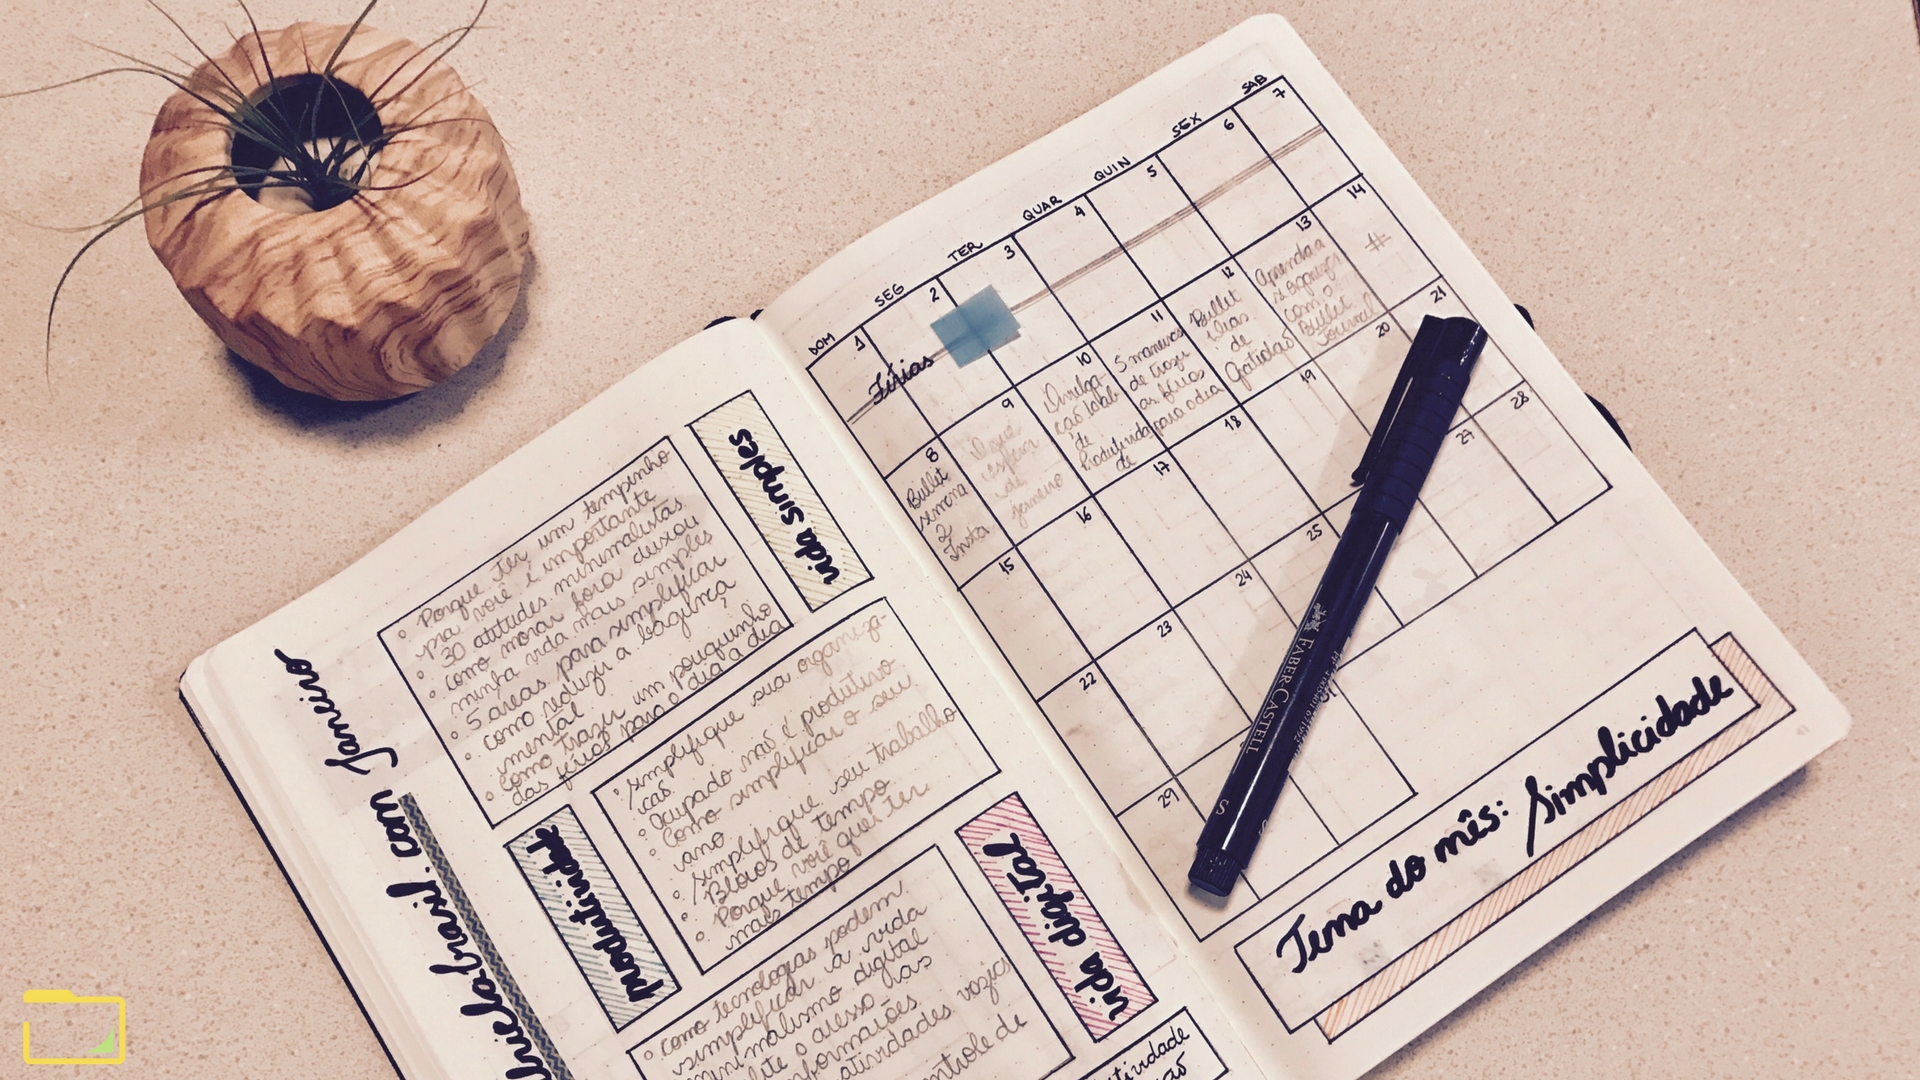 Janeiro
.com
vida simples
• Porque ter um tempinho
pra você é importante
• 30 atitudes minimalistas
• como morar fora deixou
minha vida mais simples
• 5 áreas para simplificar
• como reduzir a bagunça
mental
• Como trazer um pouquinho
das férias para o dia a dia
produtividade
• Simplifique sua organiza-
ção
• Ocupado não é produtivo
• Como simplificar o seu
ano
• Simplifique seu trabalho
• Blocos de tempo
• Porque você quer ter
mais tempo
vida digital
• Como tecnologias podem
simplificar a vida
minimalismo digital
o acesso às
informações
atividades
controle de
DOM SEG TER QUAR QUIN SEX SAB
1 2 3 4 5 6 7
Férias
8 9 10 11 12 13 14
Bullet
semana
Insta
de
janeiro
Divulga-
ção
de
Produtivida
de
5 maneiras
de trazer
as férias
para o dia
Bullet
ideias
de
gratidão
Aprenda a
com o
Bullet
Journal
#
15 16 17 18 19 20 21
22 23 24 25 27 28
29
FABER-CASTELL
S
Tema do mês: Simplicidade